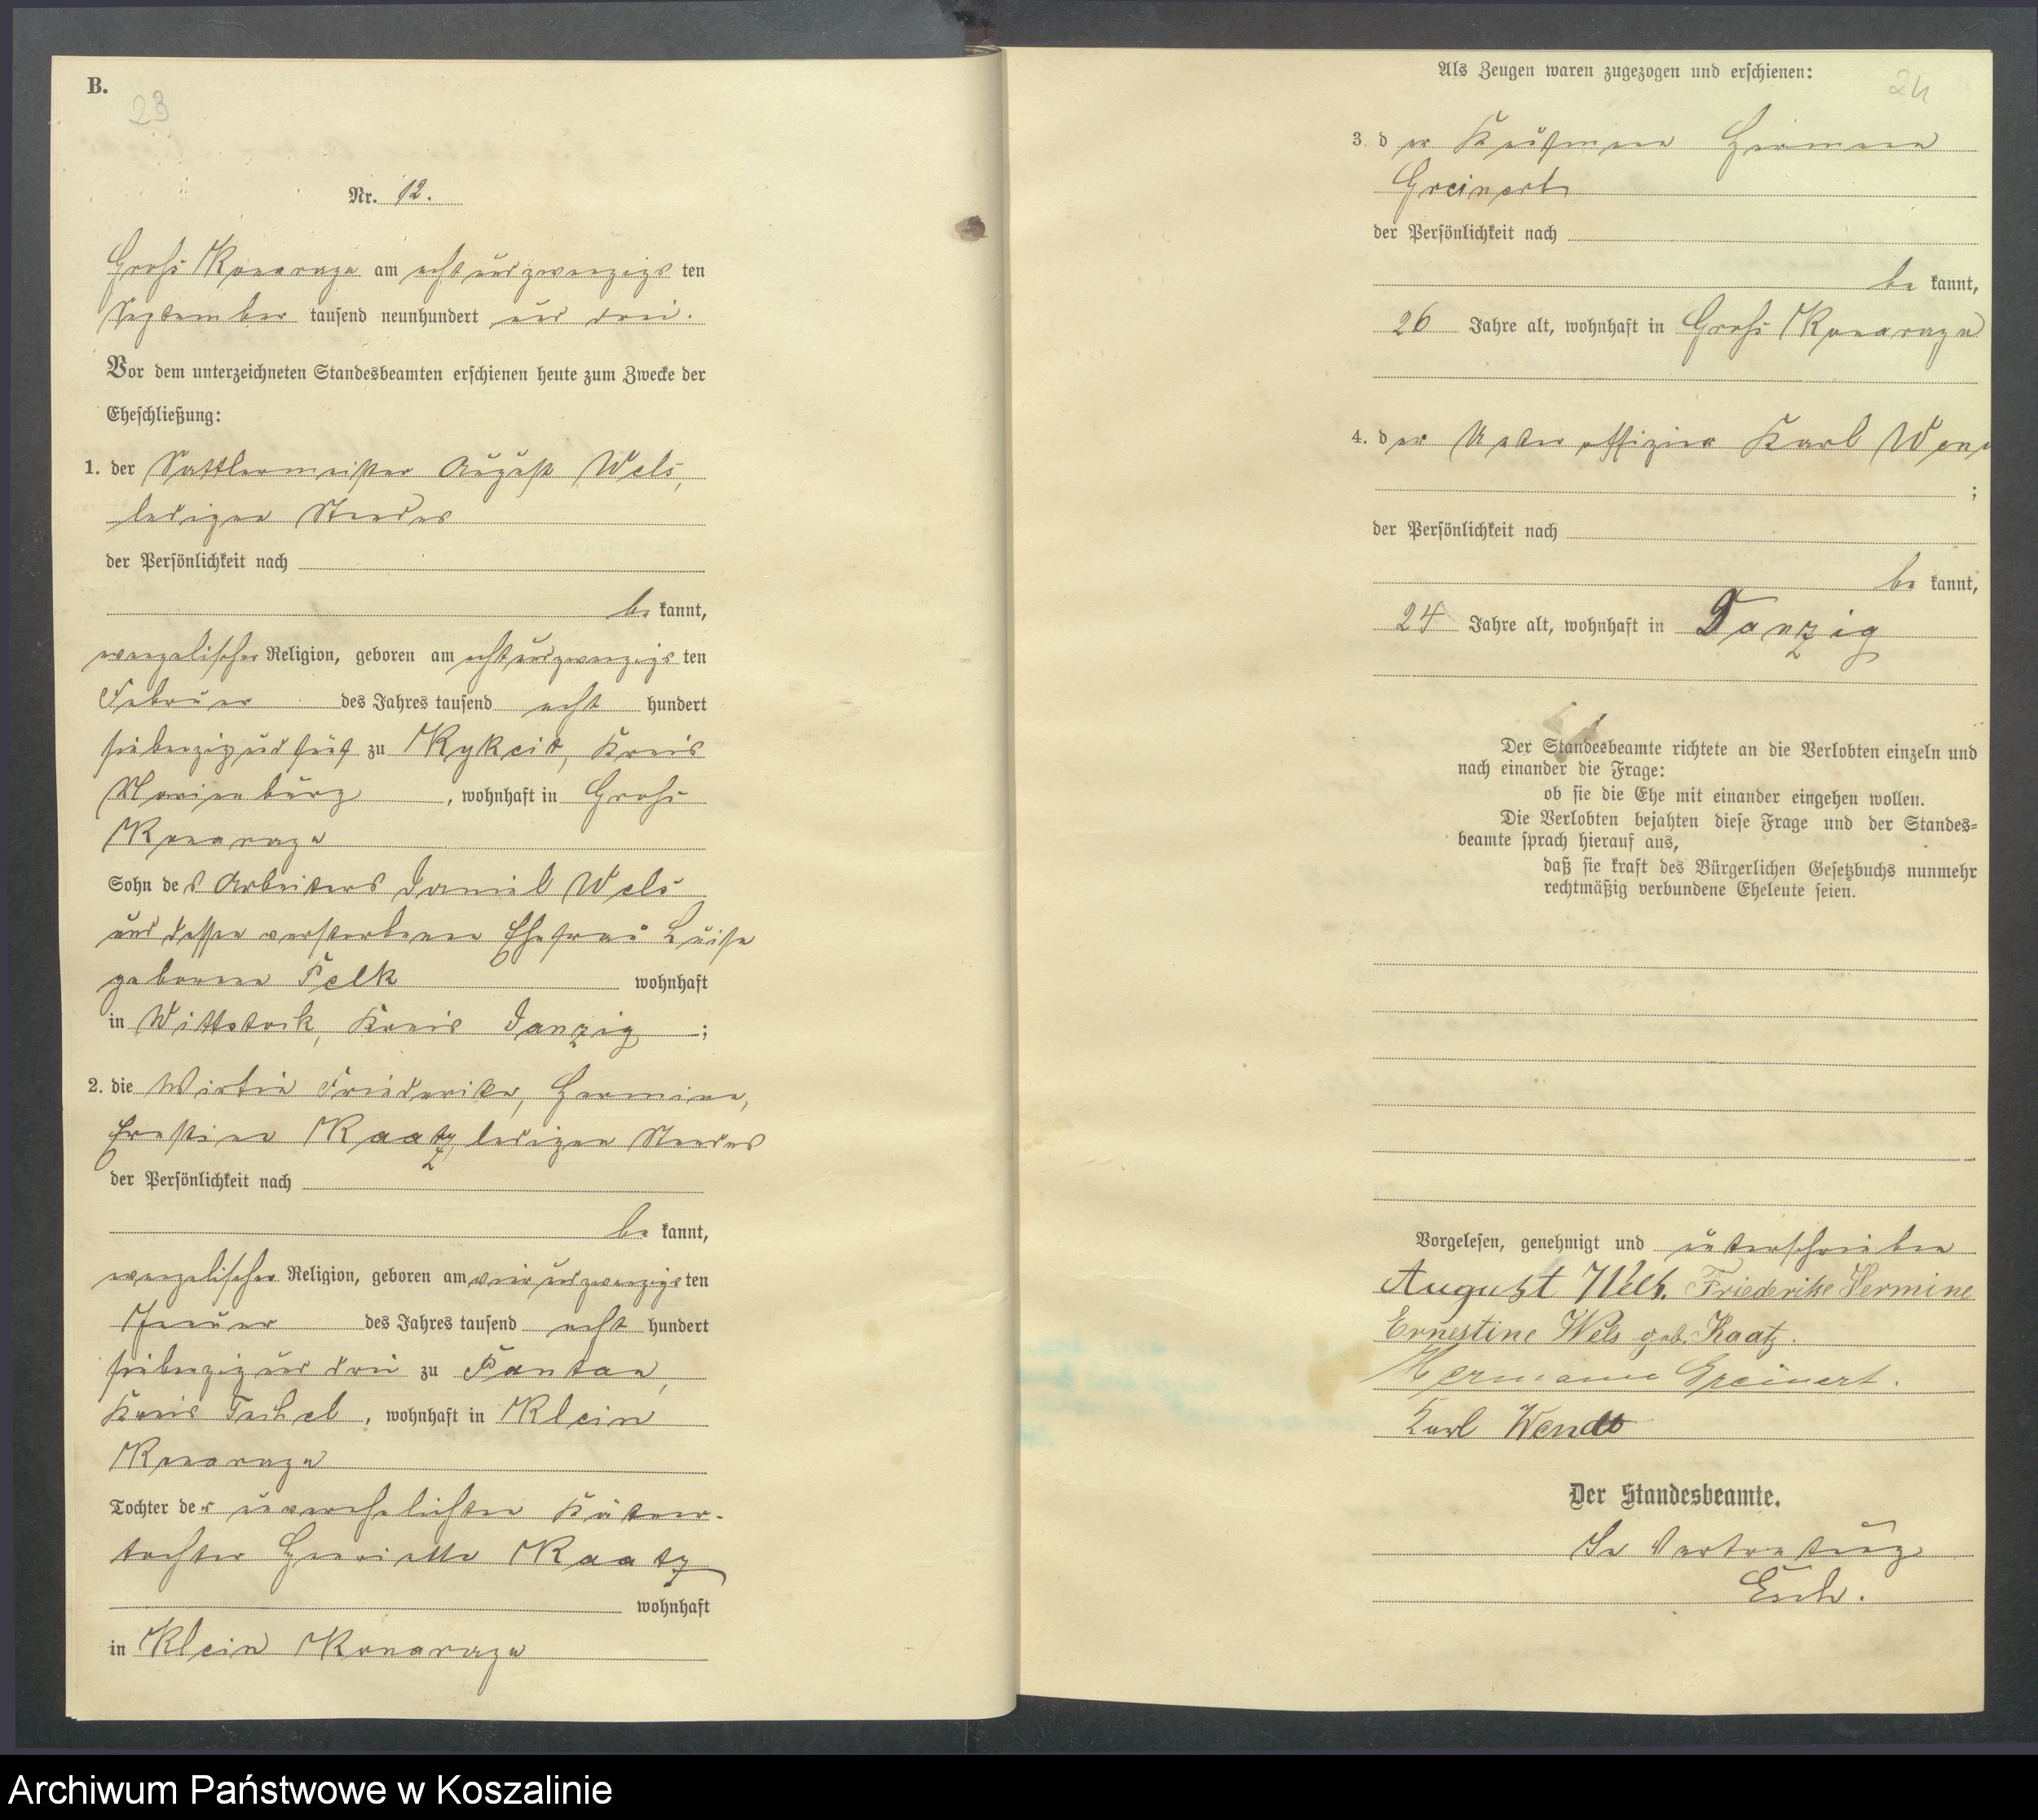 B.
23
Nr. 12.
Groß Konarzyn am acht und zwanzigs ten
September tausend neunhundert und drei.
Vor dem unterzeichneten Standesbeamten erschienen heute zum Zwecke der
Eheschließung:
1. der Sattlermeister August Wels,
ledigen Standes
der Persönlichkeit nach
be kannt,
evangelischer Religion, geboren am acht und zwanzigs ten
Februar des Jahres tausend acht hundert
siebenzig und fünf zu Kykoit, Kreis
Marienburg, wohnhaft in Groß
Konarzyn
Sohn des Arbeiters Daniel Wels
und dessen verstorbenen Ehefrau Luise
geborene Pelk wohnhaft
in Kreis Danzig;
2. die Wirtin Friederike, Hermine,
Ernstine Kaatz, ledigen Standes
der Persönlichkeit nach
be kannt,
evangelischer Religion, geboren am vier und zwanzigs ten
Januar des Jahres tausend acht hundert
siebenzig und drei zu
Kreis Tuchel, wohnhaft in Klein
Konarzyn
Tochter der unverehelichten Käthner-
tochter Henriette Kaatz
wohnhaft
in Klein Konarzyn
Als Zeugen waren zugezogen und erschienen:
24
3. der Kaufmann Hermann
Greinert
der Persönlichkeit nach
be kannt,
26 Jahre alt, wohnhaft in Groß Konarzyn
4. der Unteroffizier Karl Wen
;
der Persönlichkeit nach
be kannt,
24 Jahre alt, wohnhaft in Danzig
Der Standesbeamte richtete an die Verlobten einzeln und
nach einander die Frage:
ob sie die Ehe mit einander eingehen wollen.
Die Verlobten bejahten diese Frage und der Standes=
beamte sprach hierauf aus,
daß sie kraft des Bürgerlichen Gesetzbuchs nunmehr
rechtmäßig verbundene Eheleute seien.
Vorgelesen, genehmigt und unterschrieben
August Wels. Friederike Hermine
Ernestine Wels geb. Kaatz.
Hermann Greinert.
Karl Wendt
Der Standesbeamte.
In Vertretung
Esch.
Archiwum Państwowe w Koszalinie